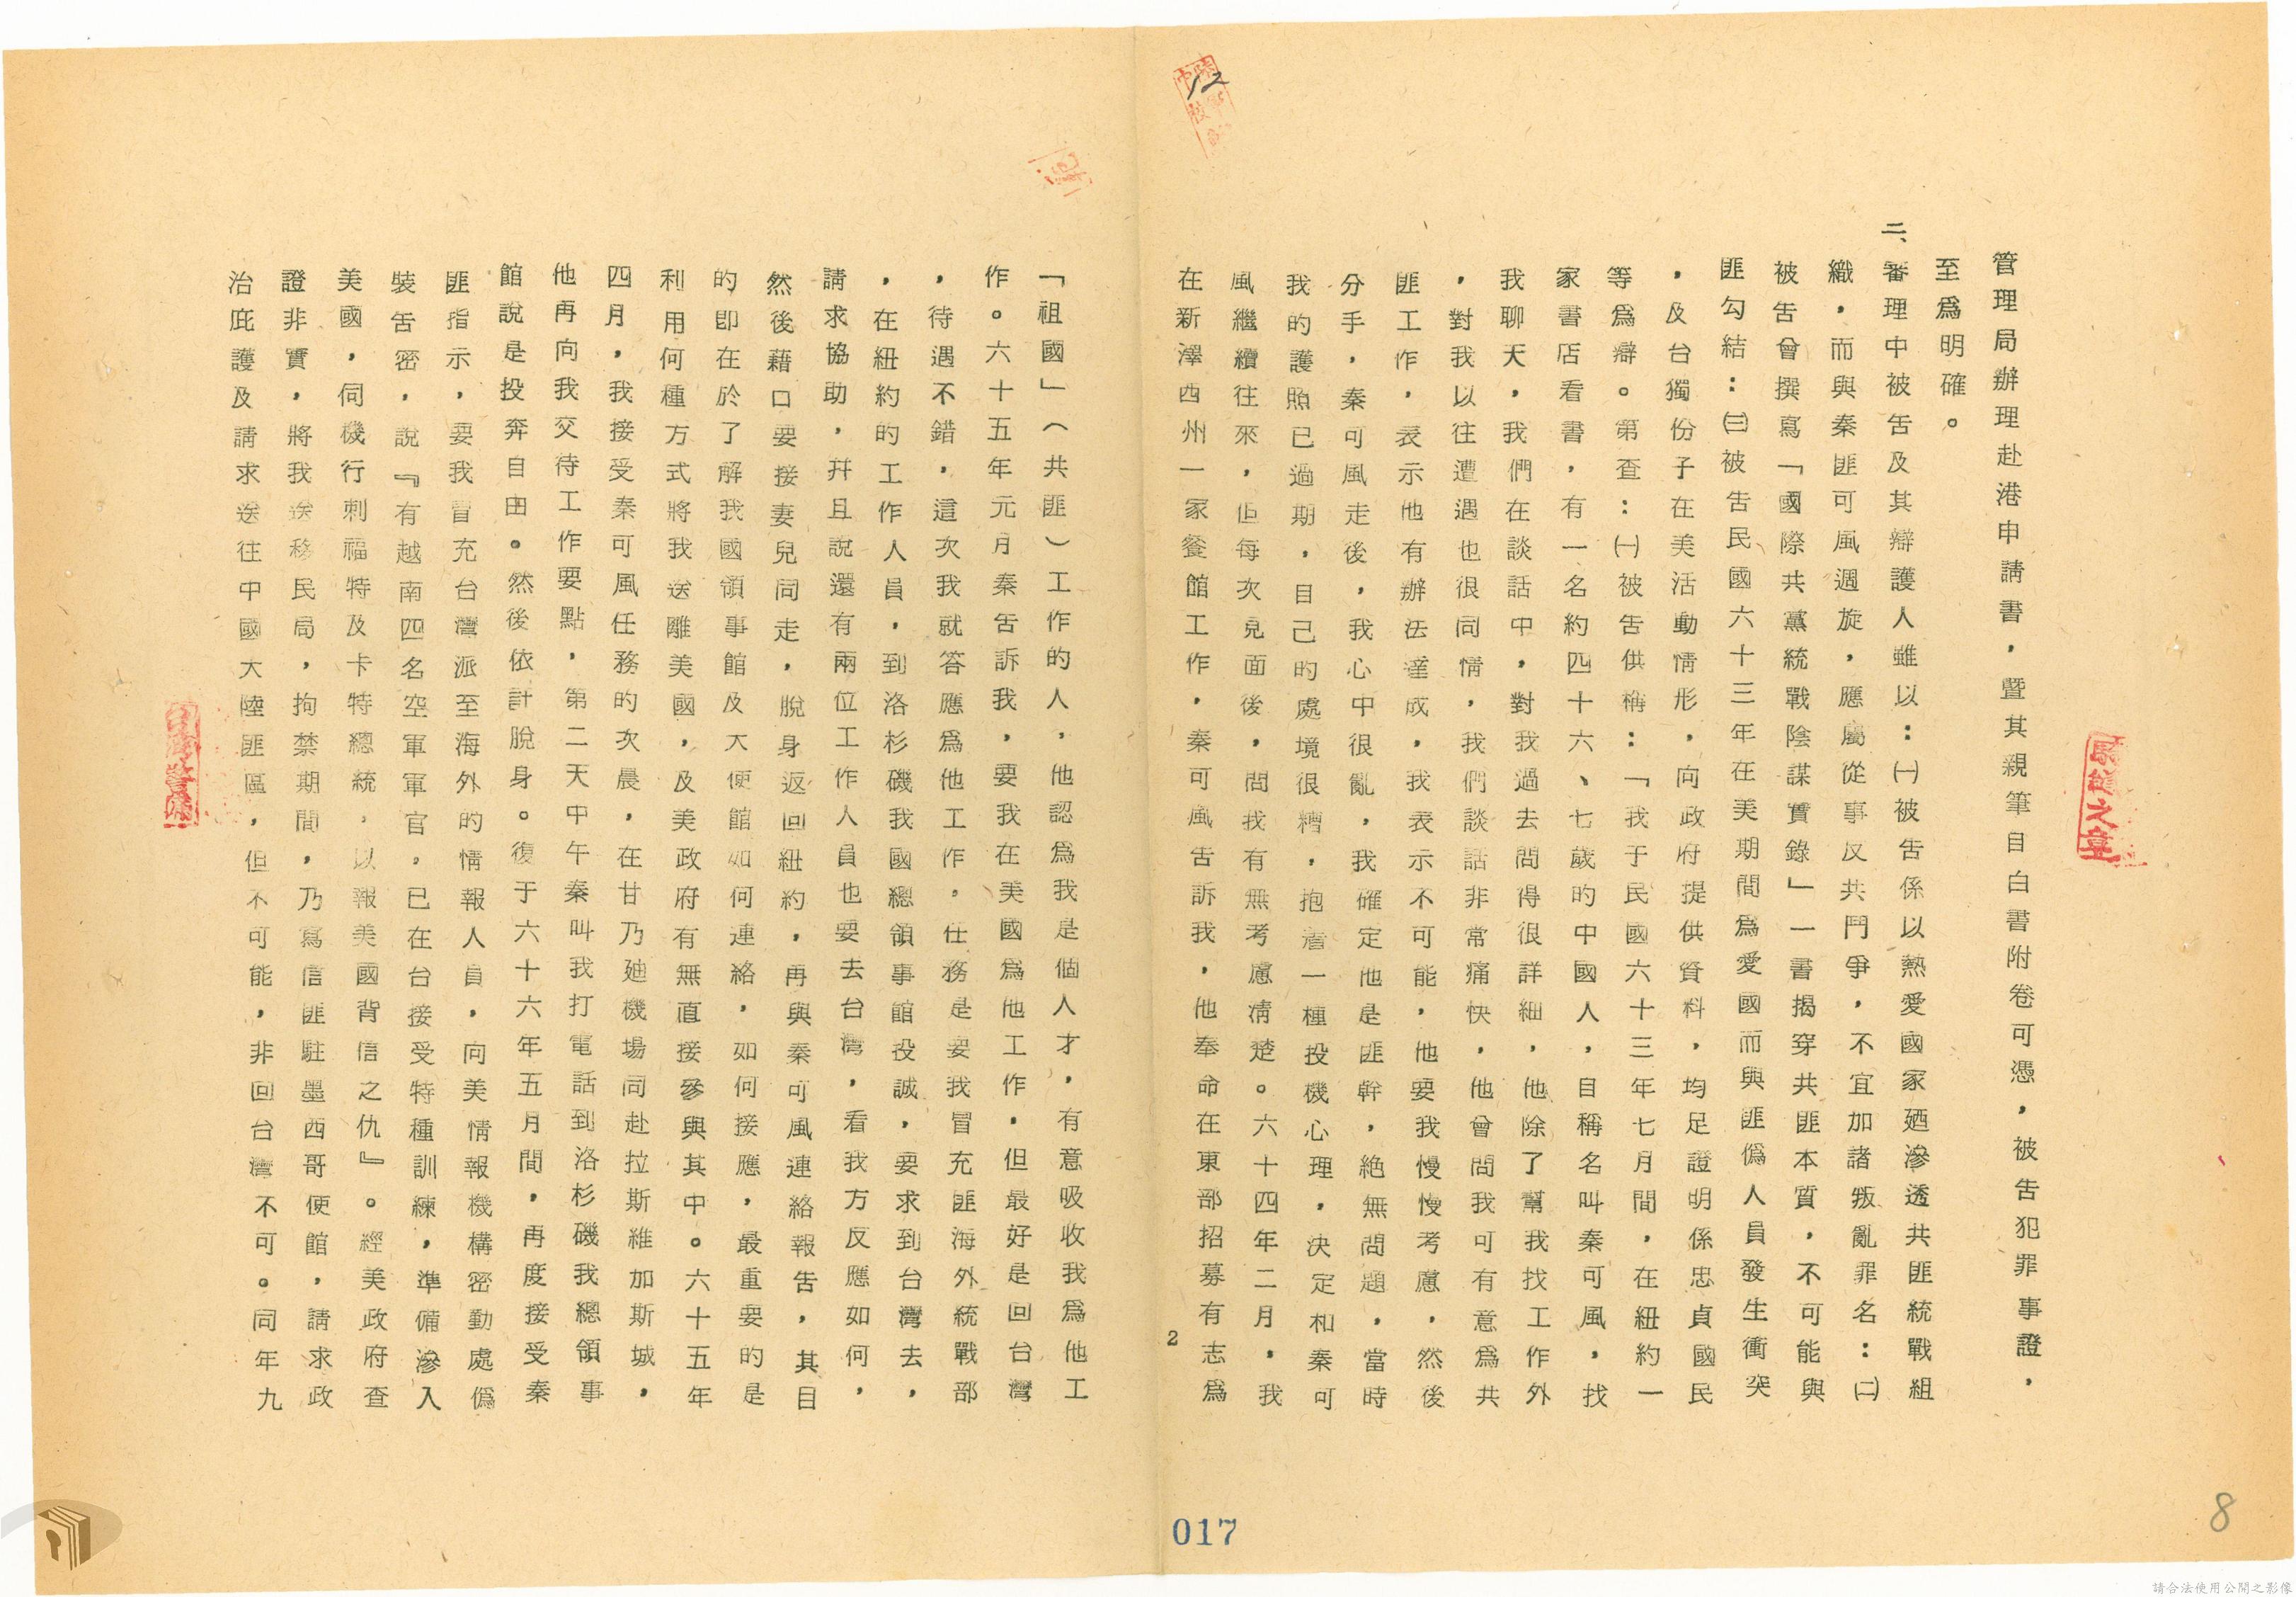 管理局辦理赴港申請書，暨其親筆自白書附卷可憑，被告犯罪事證，
至爲明確。
二、審理中被告及其辯護人雖以：㈠被告係以熱愛國家廼滲透共匪統戰組
織，而與秦匪可風週旋，應屬從事反共鬥爭，不宜加諸叛亂罪名：㈡
被告曾撰寫「國際共黨統戰陰謀實錄」一書揭穿共匪本質，不可能與
匪勾結：㈢被告民國六十三年在美期間爲愛國而與匪僞人員發生衝突
，及台獨份子在美活動情形，向政府提供資料，均足證明係忠貞國民
等爲辯。第查：㈠被告供稱：「我于民國六十三年七月間，在紐約一
家書店看書，有一名約四十六、七歲的中國人，自稱名叫秦可風，找
我聊天，我們在談話中，對我過去問得很詳細，他除了幫我找工作外
，對我以往遭遇也很同情，我們談話非常痛快，他曾問我可有意爲共
匪工作，表示他有辦法達成，我表示不可能，他要我慢慢考慮，然後
分手，秦可風走後，我心中很亂，我確定他是匪幹，絕無問題，當時
我的護照已過期，自己的處境很糟，抱着一種投機心理，決定和秦可
風繼續往來，但每次見面後，問我有無考慮清楚。六十四年二月，我
在新澤西州一家餐館工作，秦可風告訴我，他奉命在東部招募有志爲
「祖國」（共匪）工作的人，他認爲我是個人才，有意吸收我爲他工
作。六十五年元月秦告訴我，要我在美國爲他工作，但最好是回台灣
，待遇不錯，這次我就答應爲他工作，任務是要我冒充匪海外統戰部
，在紐約的工作人員，到洛杉磯我國總領事館投誠，要求到台灣去，
請求協助，幷且說還有兩位工作人員也要去台灣，看我方反應如何，
然後藉口要接妻兒同走，脫身返回紐約，再與秦可風連絡報告，其目
的即在於了解我國領事館及大使館如何連絡，如何接應，最重要的是
利用何種方式將我送離美國，及美政府有無直接參與其中。六十五年
四月，我接受秦可風任務的次晨，在甘乃廸機場同赴拉斯維加斯城，
他再向我交待工作要點，第二天中午秦叫我打電話到洛杉磯我總領事
館說是投奔自由。然後依計脫身。復于六十六年五月間，再度接受秦
匪指示，要我冒充台灣派至海外的情報人員，向美情報機構密勤處僞
裝告密，說『有越南四名空軍軍官，已在台接受特種訓練，準備滲入
美國，伺機行刺福特及卡特總統，以報美國背信之仇』。經美政府查
證非實，將我送移民局，拘禁期間，乃寫信匪駐墨西哥使館，請求政
治庇護及請求送往中國大陸匪區，但不可能，非回台灣不可。同年九
2
017
8
12
請合法使用公開之影像